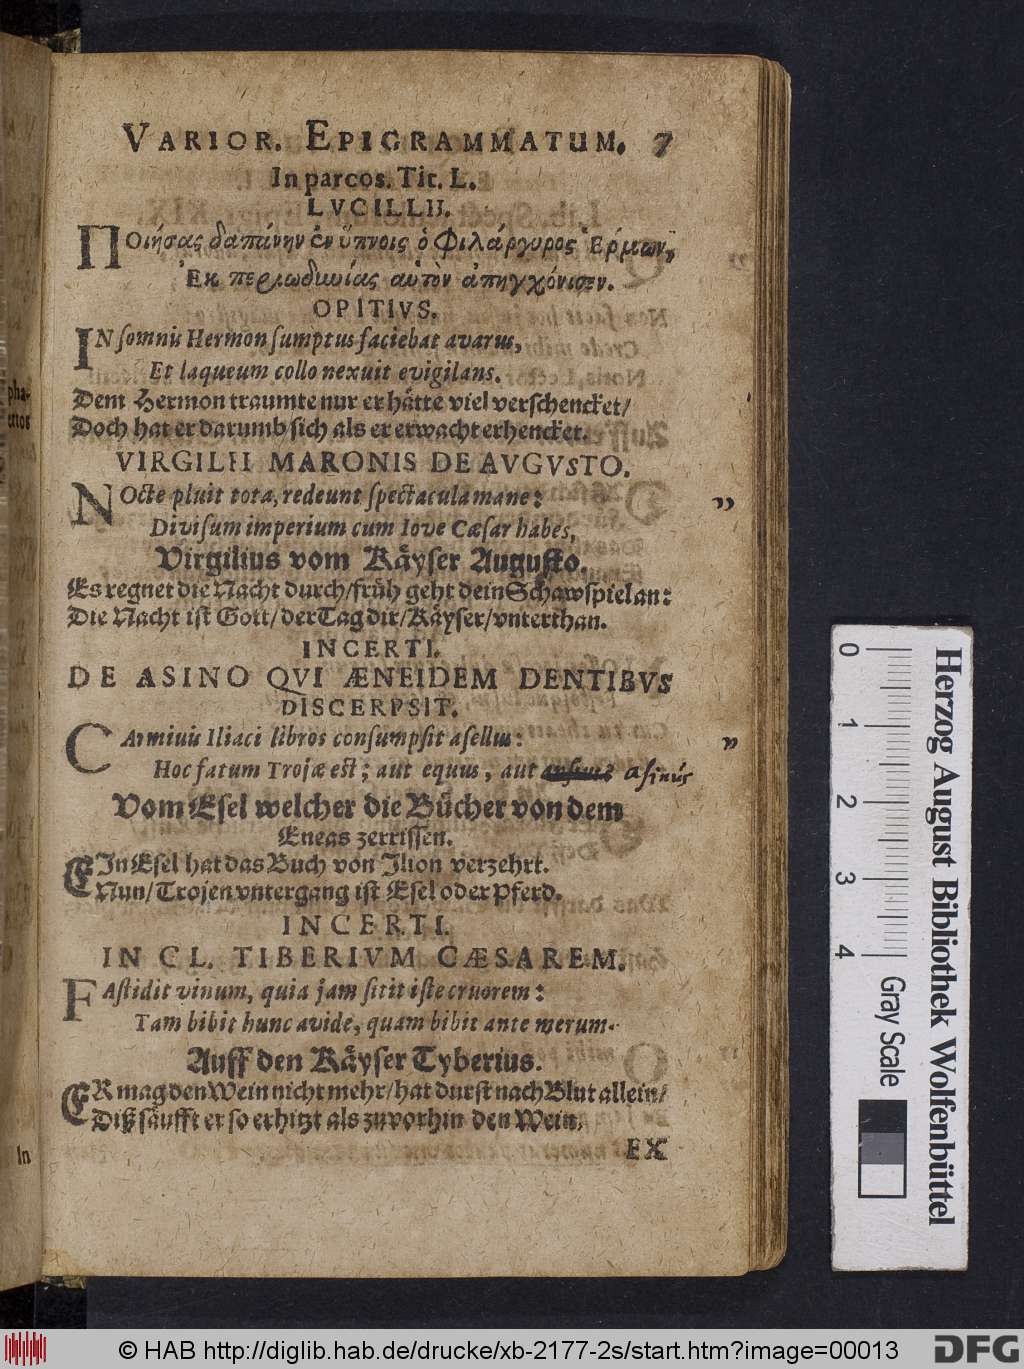 VARIOR. EPIGRAMMATUM. 7
In parcos. Tit. L.
LVCILLII.
ΠΟιήσας δαπάνην ἐν ὕπνοις ὁ Φιλάργυρος Ἑρμων,
Ἐκ περιωδυνίας αὑτὸν ἀπηγχόνισεν.
OPITIVS.
IN somniis Hermon sumptus faciebat avarus,
Et laqueum collo nexuit evigilans.
Dem Hermon traumte nur er hätte viel verschencket/
Doch hat er darumb sich als er erwacht erhencket.
VIRGILII MARONIS DE AVGVSTO.
NOcte pluit tota, redeunt spectacula mane: ,,
Divisum imperium cum Iove Cæsar habes,
Virgilius vom Käyser Augusto.
Es regnet die Nacht durch/früh geht dein Schawspiel an:
Die Nacht ist Gott/der Tag dir/Käyser/vnterthan.
INCERTI.
DE ASINO QVI ÆNEIDEM DENTIBVS
DISCERPSIT.
CArminis Iliaci libros consumpsit asellus: ,,
Hoc fatum Trojæ est; aut equus, aut asinus
Vom Esel welcher die Bücher von dem
Eneas zerrissen.
EIn Esel hat das Buch von Ilion verzehrt.
Nun/Trojen vntergang ist Esel oder Pferd.
INCERTI.
IN CL. TIBERIVM CÆSAREM.
FAstidit vinum, quia jam sitit iste cruorem:
Tam bibit hunc avide, quam bibit ante merum.
Auff den Käyser Tyberius.
ER mag den Wein nicht mehr/hat durst nach Blut allein/
Diß säufft er so erhitzt als zuvorhin den Wein.
EX
pha-
ettos
In
0 1 2 3 4
Gray Scale
Herzog August Bibliothek Wolfenbüttel
© HAB http://diglib.hab.de/drucke/xb-2177-2s/start.htm?image=00013
DFG